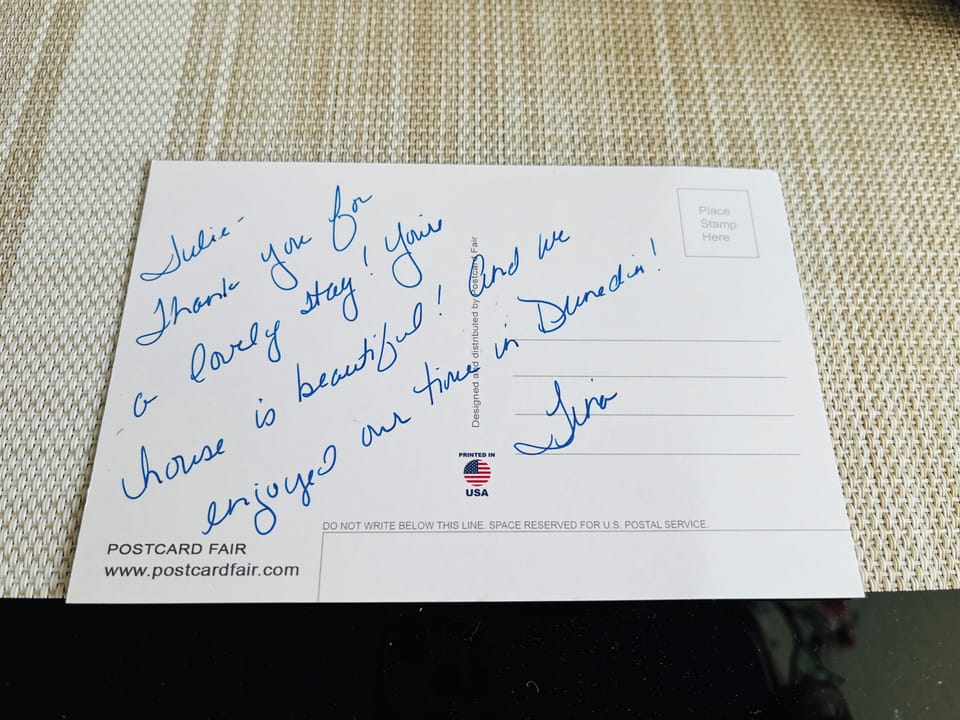 Julie-
Thank you for
a lovely stay! Your
house is beautiful! And we
enjoyed our time in Dunedin!
Tina
Place
Stamp
Here
Designed and distributed by Postcard Fair
PRINTED IN
USA
DO NOT WRITE BELOW THIS LINE. SPACE RESERVED FOR U.S. POSTAL SERVICE.
POSTCARD FAIR
www.postcardfair.com